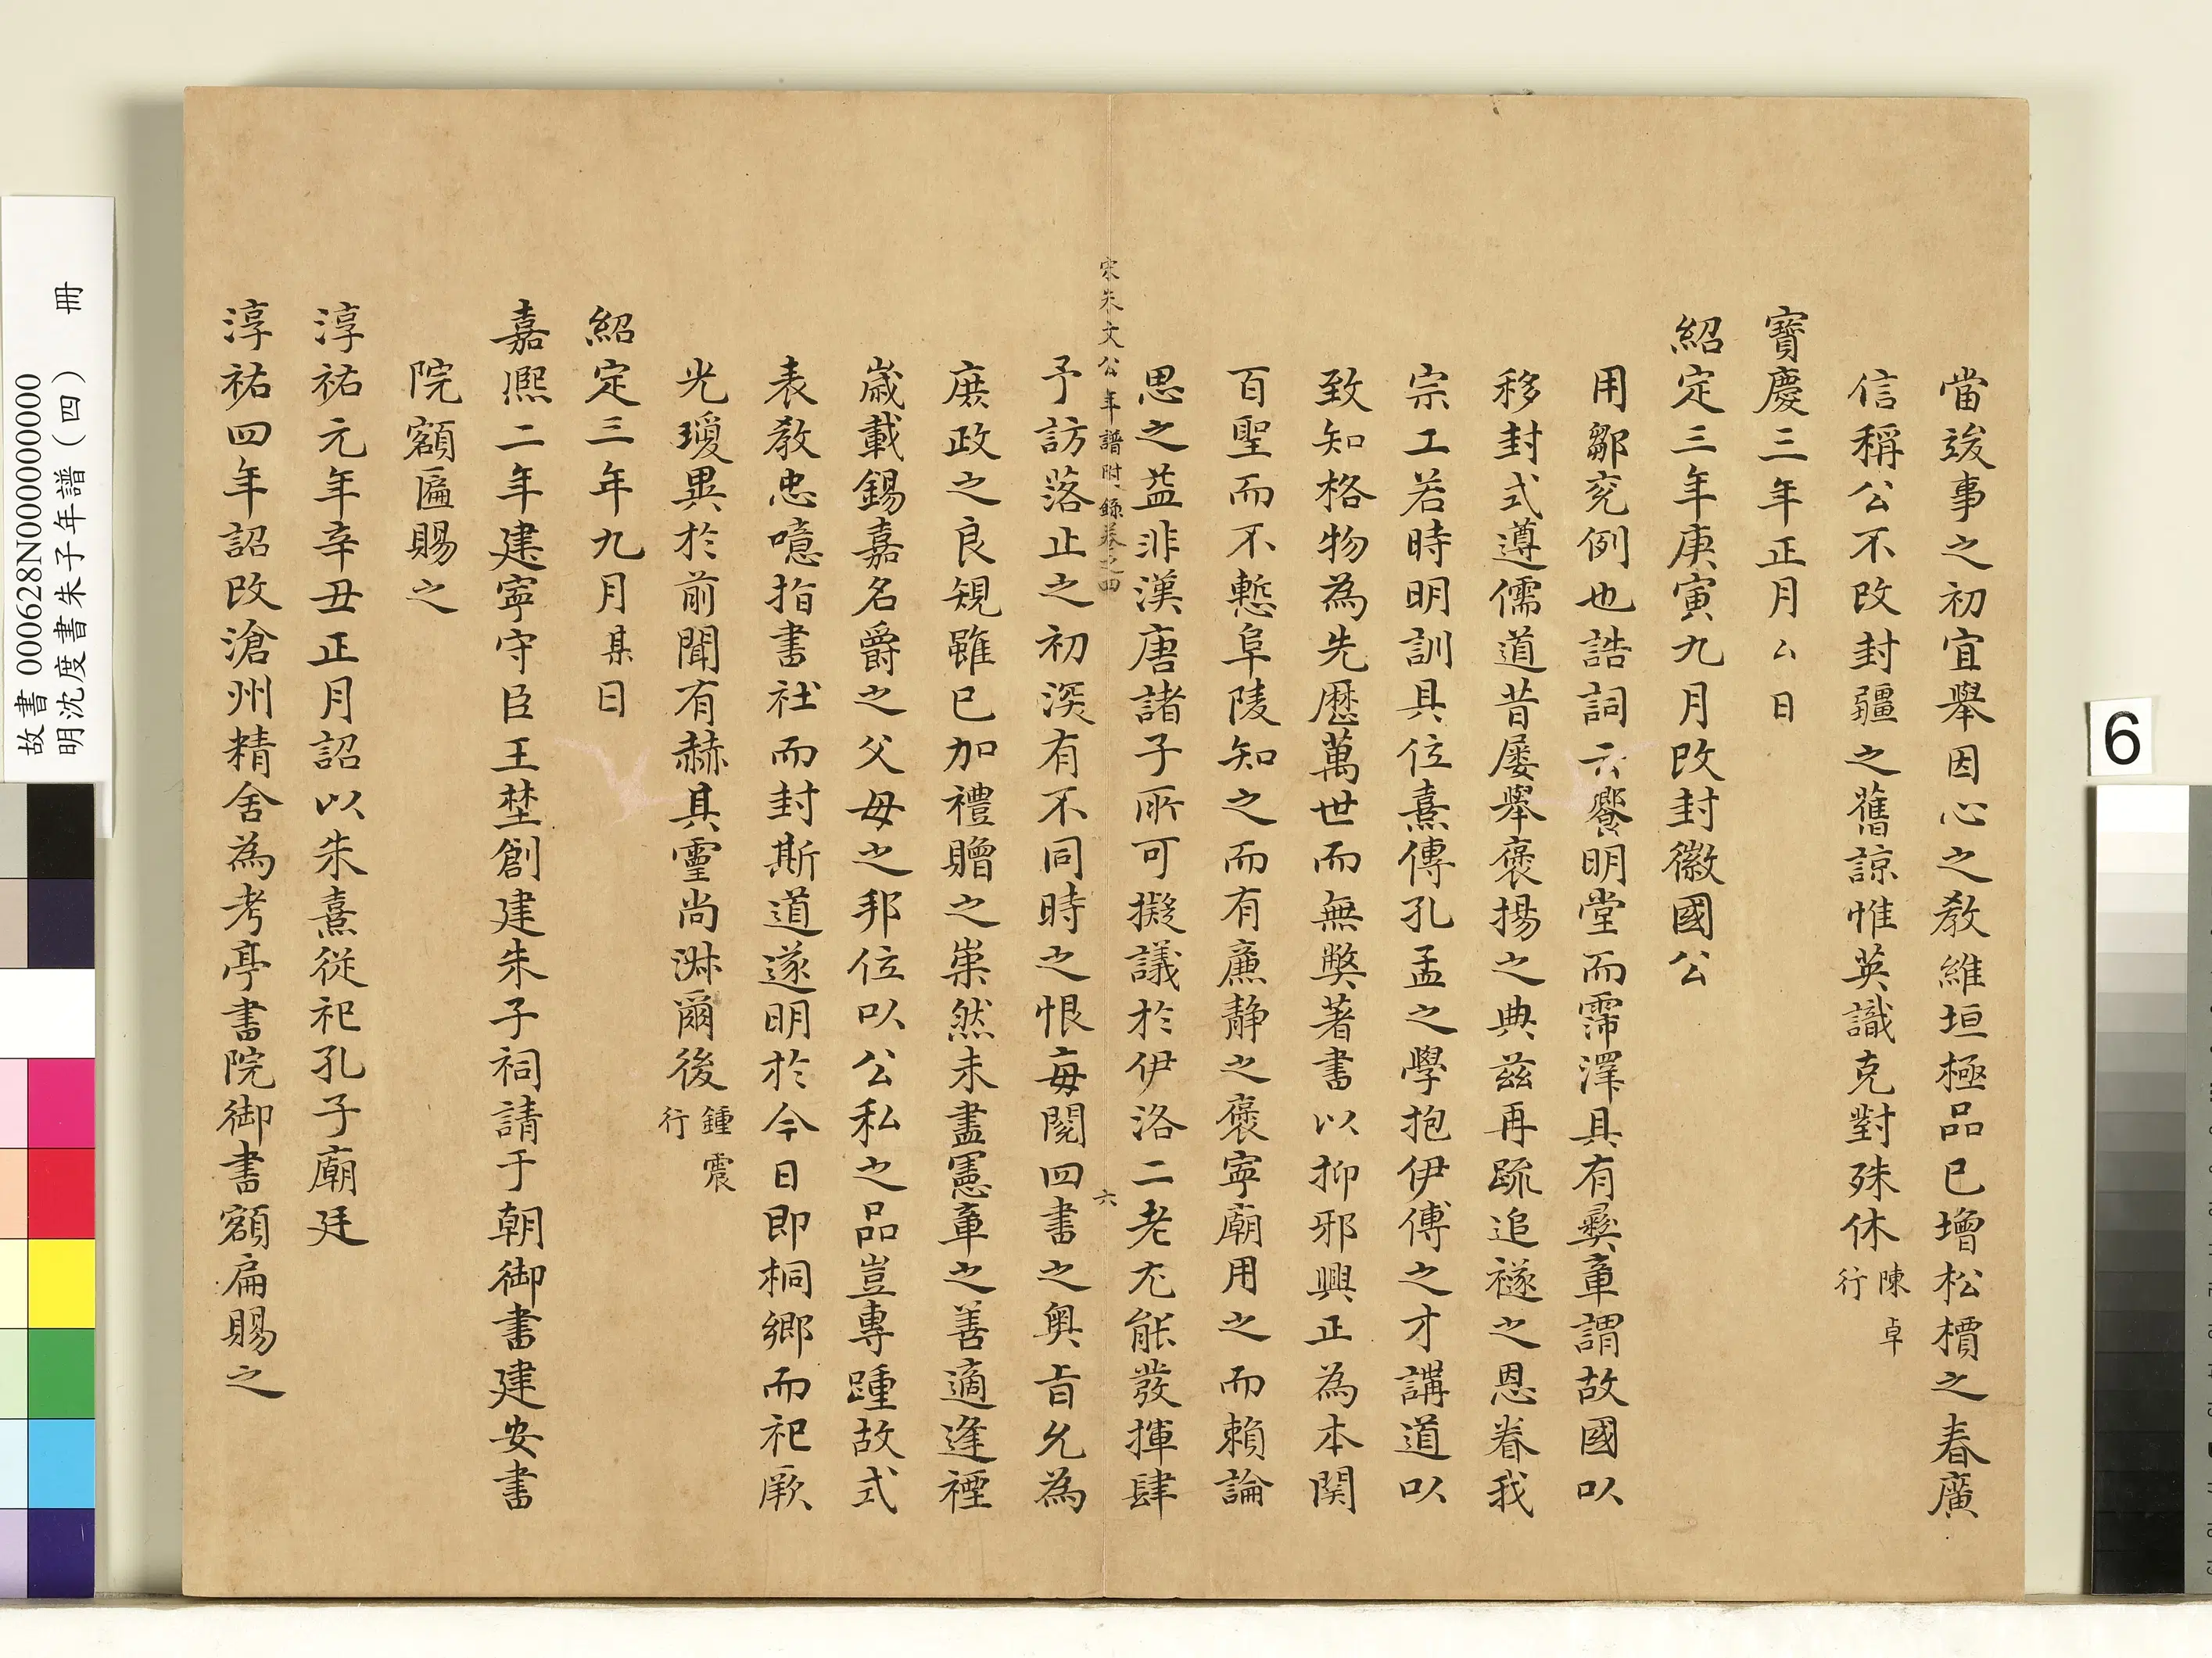 當竣事之初宜舉因心之教維垣極品已增松檟之春廣
信稱公不改封疆之舊諒惟英識克對殊休陳卓行
寶慶三年正月厶日
紹定三年庚寅九月改封徽國公
用鄒兖例也誥詞云饗明堂而霈澤具有彝章謂故國以
移封式遵儒道昔屡舉褒揚之典兹再䟽追襚之恩眷我
宗工若時明訓具位熹傳孔孟之學抱伊傅之才講道以
致知格物為先歷萬世而無獘著書以抑邪興正為本関
百聖而不慙阜陵知之而有廉静之褒寧廟用之而賴論
思之益非漢唐諸子所可擬議於伊洛二老尤能發揮肆
宋朱文公年譜附錄卷之四
六
予訪落止之初深有不同時之恨每閱四書之奥旨允為
庶政之良規雖已加禮贈之崇然未盡憲章之善適逢禋
歲載錫嘉名爵之父母之邦位以公私之品豈專踵故式
表教忠噫指書社而封斯道遂明於今日即桐鄉而祀厥
光瓊異於前聞有赫其靈尚淋爾後鍾震行
紹定三年九月某日
嘉熙二年建寧守臣王埜創建朱子祠請于朝御書建安書
院額匾賜之
淳祐元年辛丑正月詔以朱熹從祀孔子廟廷
淳祐四年詔改滄州精舍為考亭書院御書額扁賜之
故書 000628N000000000
明沈度書朱子年譜（四） 冊
6